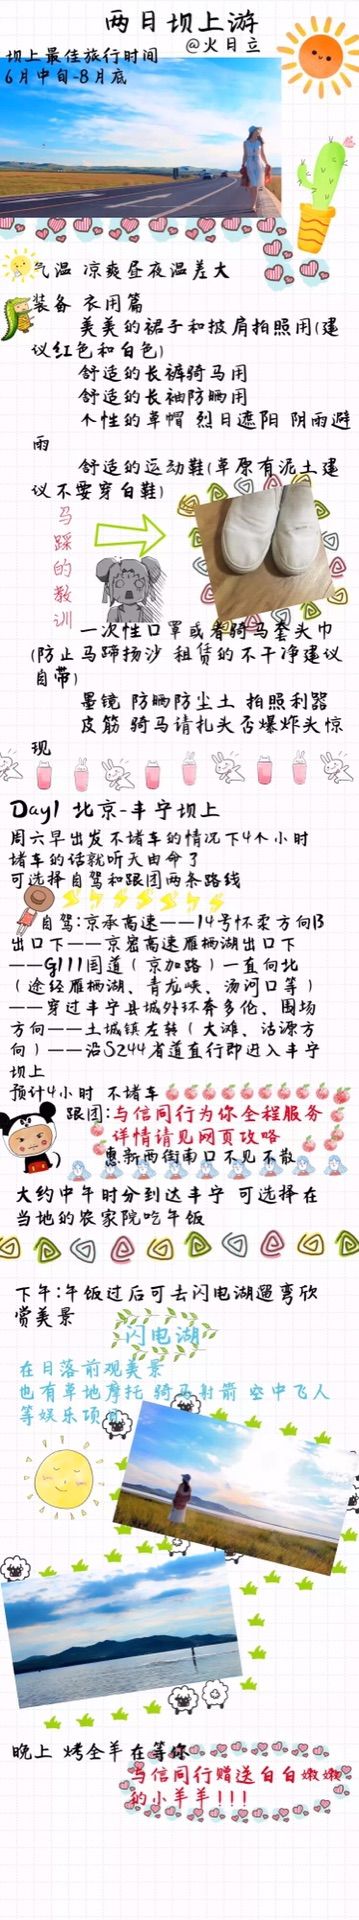 两日坝上游
@火日立
坝上最佳旅行时间
6月中旬-8月底
气温 凉爽昼夜温差大
装备 衣用篇
美美的裙子和披肩拍照用(建
议红色和白色)
舒适的长裤骑马用
舒适的长袖防晒用
个性的草帽 烈日遮阳 阴雨避
雨
舒适的运动鞋(草原有泥土建
议不要穿白鞋)
马踩的教训
一次性口罩或者骑马套头巾
(防止马蹄扬沙 租赁的不干净建议
自带)
墨镜 防晒防尘土 拍照利器
皮筋 骑马请扎头否爆炸头惊
现
Day1 北京-丰宁坝上
周六早出发不堵车的情况下4个小时
堵车的话就听天由命了
可选择自驾和跟团两条路线
自驾:京承高速——14号怀柔方向B
出口下——京密高速雁栖湖出口下
——G111国道（京加路）一直向北
（途经雁栖湖、青龙峡、汤河口等）
——穿过丰宁县城外环奔多伦、围场
方向——土城镇左转（大滩、沽源方
向）——沿S244省道直行即进入丰宁
坝上
预计4小时 不堵车
跟团:与信同行为你全程服务
详情请见网页攻略
惠新西街南口不见不散
大约中午时分到达丰宁 可选择在
当地的农家院吃午饭
下午:午饭过后可去闪电湖遛弯欣
赏美景
闪电湖
在日落前观美景
也有草地摩托 骑马射箭 空中飞人
等娱乐项目
晚上 烤全羊在等你
与信同行赠送白白嫩嫩
的小羊羊!!!